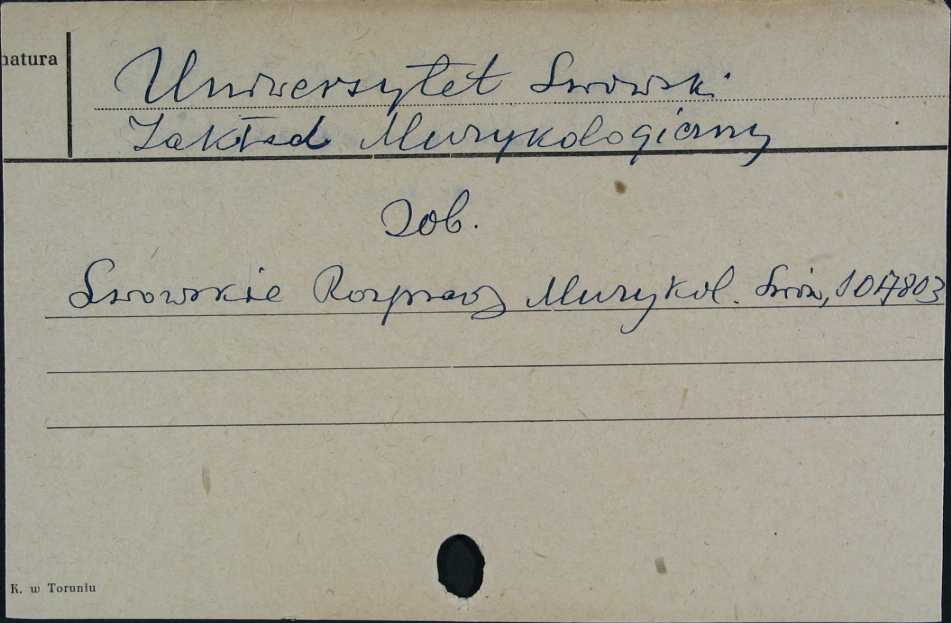 natura
Uniwersytet Lwowski
Zakład Muzykologiczny
Zob.
Lwowskie Rozprawy Muzykol. Lwów, 1017803
K. w Toruniu